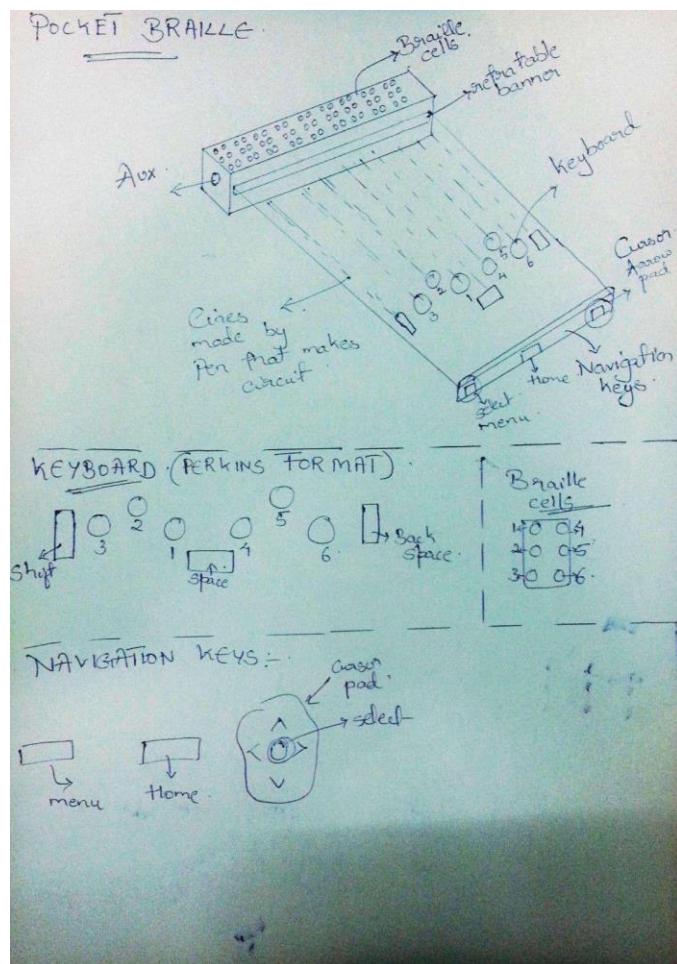 POCKET BRAILLE.
Braille
cells.
refratable
banner
Aux.
Keyboard
5
6
4
2
1
3
Cursor
Arrow
pad
Lines
made by
Pen that makes
circuit
Navigation
keys.
Home
select
menu.
KEYBOARD. (PERKINS FORMAT).
Braille
cells
2
5
3
1
4
6
Back
space.
Shift
space
1 4
2 5
3 6.
NAVIGATION KEYS:-
Cursor
pad.
select
menu
Home.